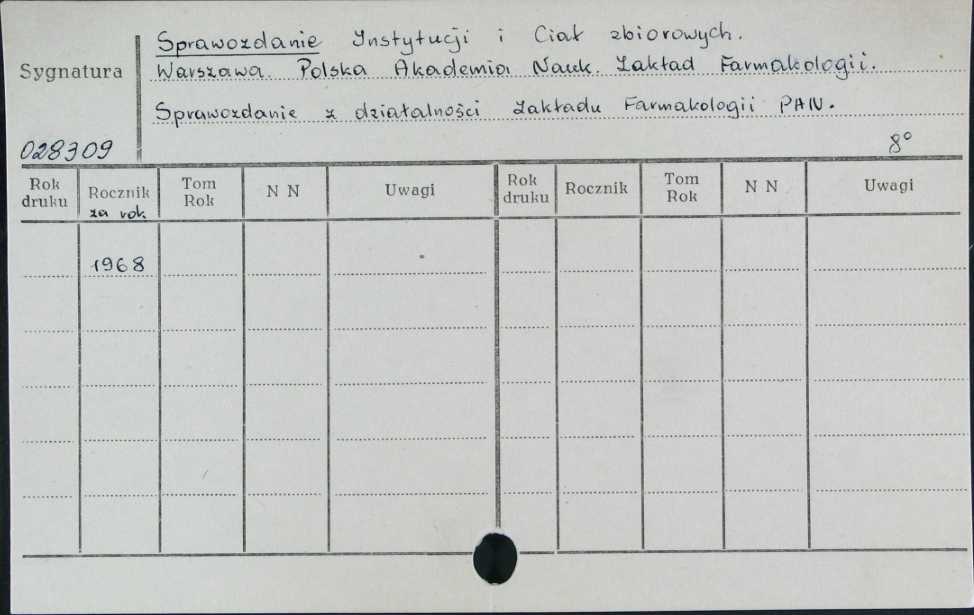 Sprawozdanie Instytucji i Ciał zbiorowych.
Sygnatura
Warszawa. Polska Akademia Nauk. Zakład Farmakologii.
Sprawozdanie z działalności Zakładu Farmakologii PAN.
028309
8°
Rok druku Rocznik za rok. Tom Rok N N Uwagi Rok druku Rocznik Tom Rok N N Uwagi
1968